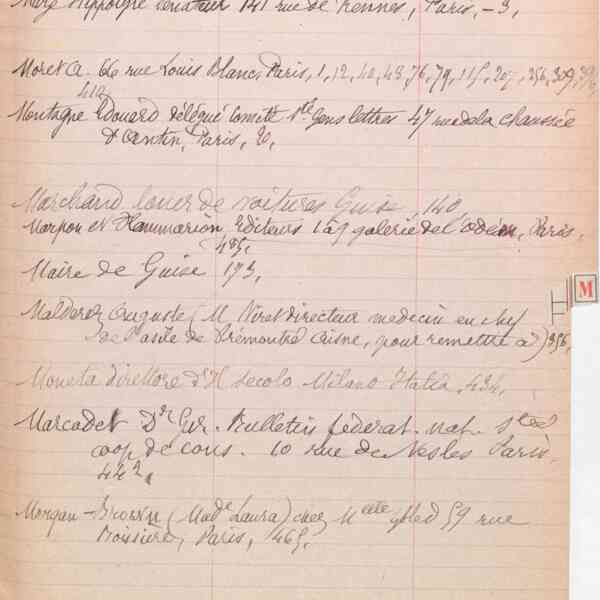 Hippolyte Sénateur 141 rue de Rennes, Paris, – 3,
Moret A. 66 rue Louis Blanc, Paris, 1, 12, 40, 48, 76, 79, 115, 207, 256, 309,
412
Montagne Edouard délégué Comité Sté Gens lettres 47 rue de la chaussée
d'Antin, Paris, 20,
Marchand loueur de voitures Guise 140
Marpon et Flammarion, Editeurs 1 à 9 galerie de l'Odéon, Paris,
485,
Maire de Guise 173,
M
Auguste (M. Viret directeur medecin en chef
de l'asile de Prémontré Aisne, pour remettre à) 356,
Moneta direttore d'Il secolo Milano Italia, 434,
Marcadet Dr Gér. Bulletin fédérat. nat. Stés
coop de cons. 10 rue de Nesles Paris,
442,
Morgan-Brown (Made Laura) chez 59 rue
Boissière, Paris, 465,